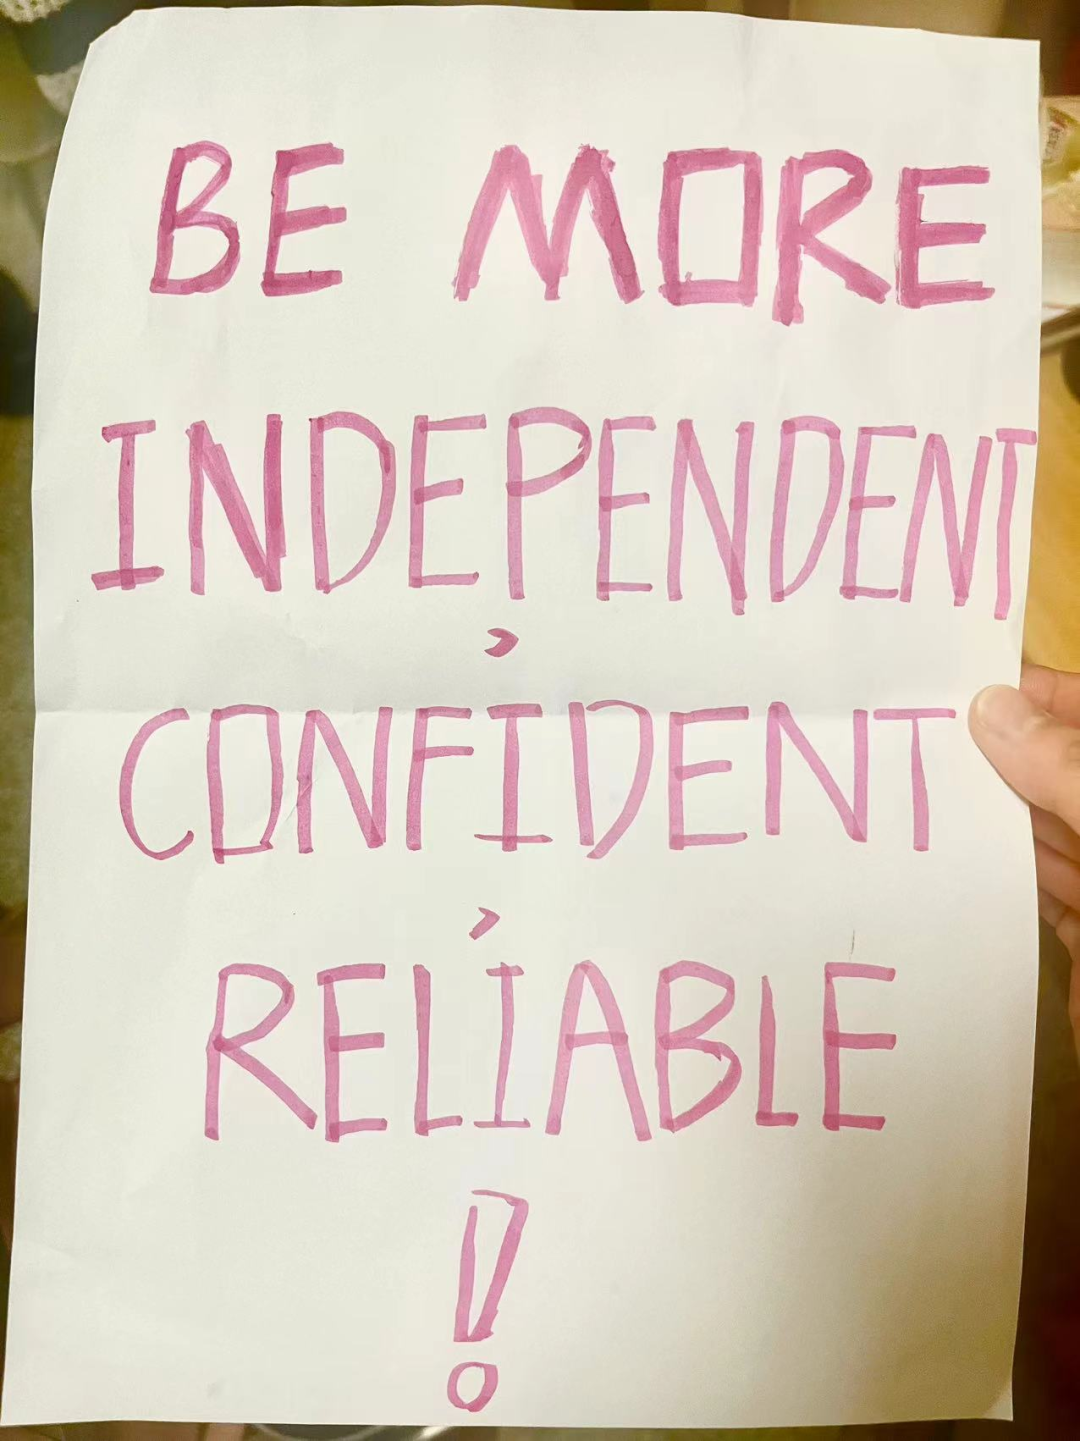 BE MORE
INDEPENDENT
,
CONFIDENT
,
RELIABLE
!